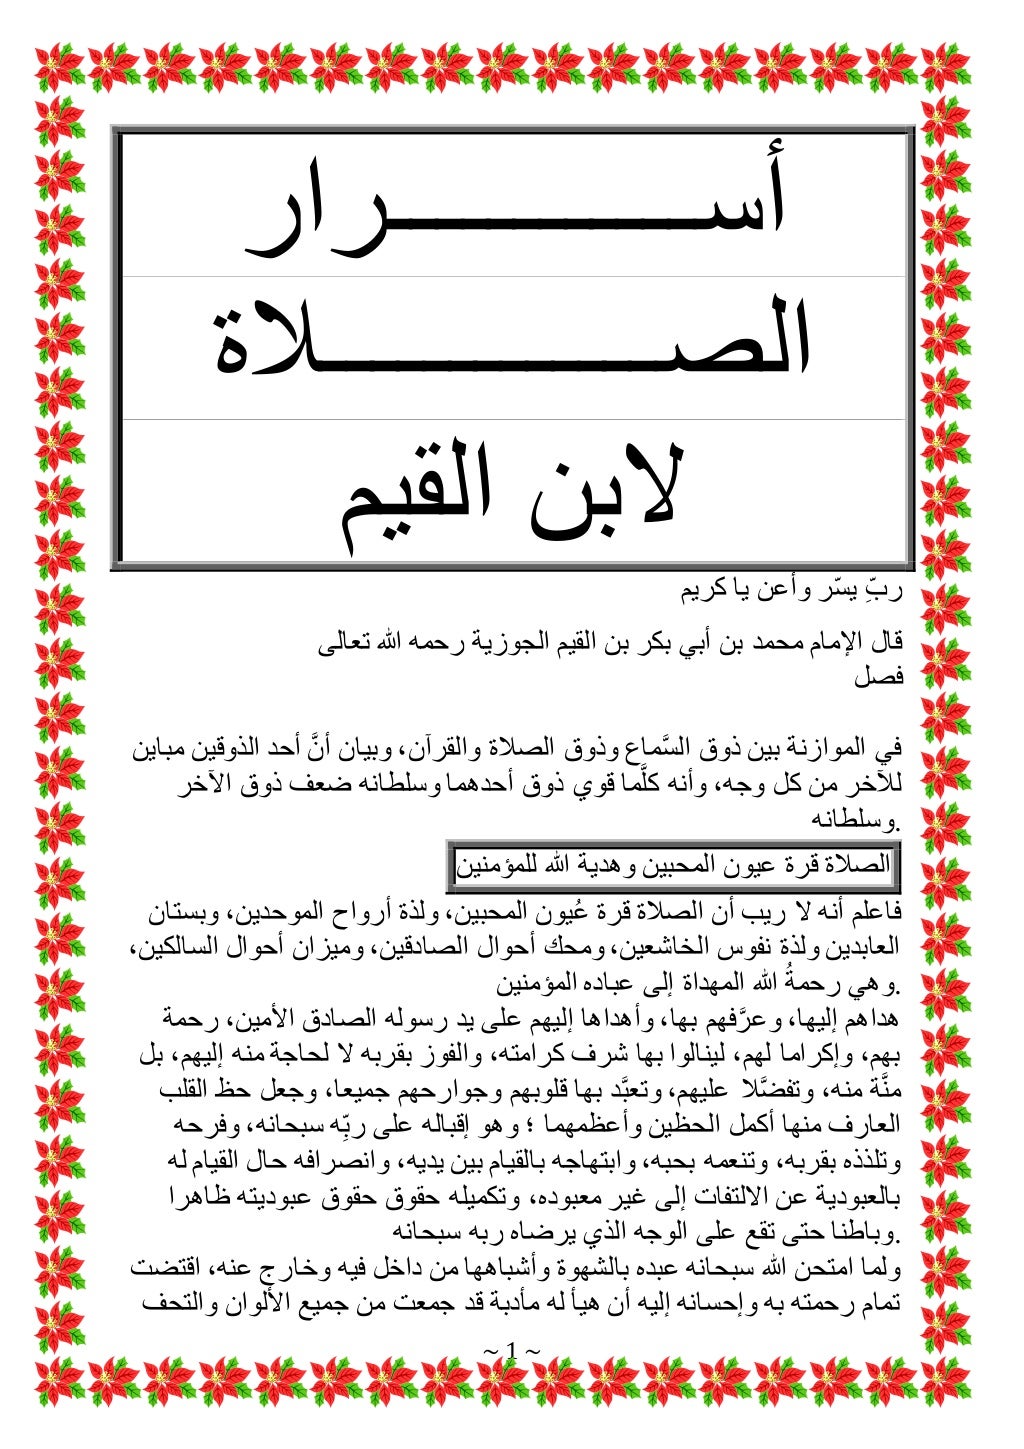 أســـــــــــرار
الصـــــــــــلاة
لابن القيم
ربِّ يسّر وأعن يا كريم
قال الإمام محمد بن أبي بكر بن القيم الجوزية رحمه الله تعالى
فصل
في الموازنة بين ذوق السَّماع وذوق الصلاة والقرآن، وبيان أنَّ أحد الذوقين مباين
للآخر من كل وجه، وأنه كلَّما قوي ذوق أحدهما وسلطانه ضعف ذوق الآخر
.وسلطانه
الصلاة قرة عيون المحبين وهدية الله للمؤمنين
فاعلم أنه لا ريب أن الصلاة قرة عُيون المحبين، ولذة أرواح الموحدين، وبستان
العابدين ولذة نفوس الخاشعين، ومحك أحوال الصادقين، وميزان أحوال السالكين،
.وهي رحمةُ الله المهداة إلى عباده المؤمنين
هداهم إليها، وعرَّفهم بها، وأهداها إليهم على يد رسوله الصادق الأمين، رحمة
بهم، وإكراما لهم، لينالوا بها شرف كرامته، والفوز بقربه لا لحاجة منه إليهم، بل
منَّة منه، وتفضَّلا عليهم، وتعبَّد بها قلوبهم وجوارحهم جميعا، وجعل حظ القلب
العارف منها أكمل الحظين وأعظمهما ؛ وهو إقباله على ربِّه سبحانه، وفرحه
وتلذذه بقربه، وتنعمه بحبه، وابتهاجه بالقيام بين يديه، وانصرافه حال القيام له
بالعبودية عن الالتفات إلى غير معبوده، وتكميله حقوق حقوق عبوديته ظاهرا
.وباطنا حتى تقع على الوجه الذي يرضاه ربه سبحانه
ولما امتحن الله سبحانه عبده بالشهوة وأشباهها من داخل فيه وخارج عنه، اقتضت
تمام رحمته به وإحسانه إليه أن هيأ له مأدبة قد جمعت من جميع الألوان والتحف
~ 1 ~